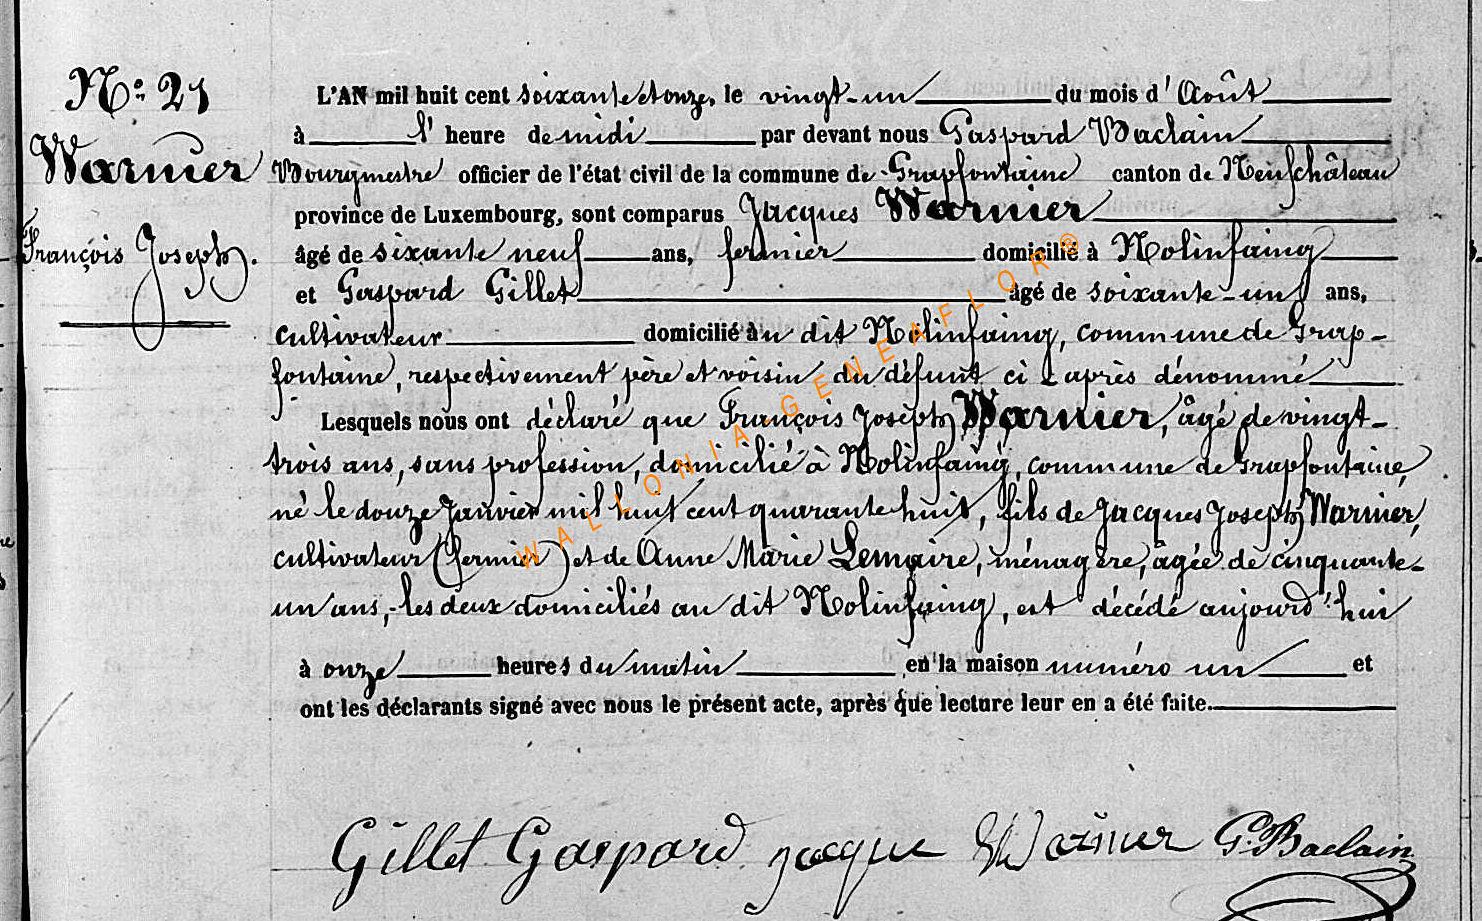 No. 21
Warnier
François Joseph.
L'AN mil huit cent soixante et onze, le vingt-un du mois d'Août
à l'heure de midi par devant nous Gaspard Baclain
Bourgmestre officier de l'état civil de la commune de Grapfontaine canton de Neufchâteau
province de Luxembourg, sont comparus Jacques Warnier
âgé de sixante neuf ans, fermier domicilié à Nolinfaing
et Gaspard Gillet âgé de soixante-un ans,
cultivateur domicilié au dit Nolinfaing, commune de Grap-
fontaine, respectivement père et voisin du défunt ci-après dénommé
Lesquels nous ont déclaré que François Joseph Warnier, âgé de vingt-
trois ans, sans profession, domicilié à Nolinfaing, commune de Grapfontaine,
né le douze Janvier mil huit cent quarante huit, fils de Jacques Joseph Warnier,
cultivateur (fermier) et de Anne Marie Lemaire, ménagère, âgée de cinquante-
un ans, les deux domiciliés au dit Nolinfaing, est décédé aujourd'hui
à onze heures du matin en la maison numéro un et
ont les déclarants signé avec nous le présent acte, après que lecture leur en a été faite.
Gillet Gaspard jacque Warnier G. Baclain
WALLONIA-GENEAFLOR®